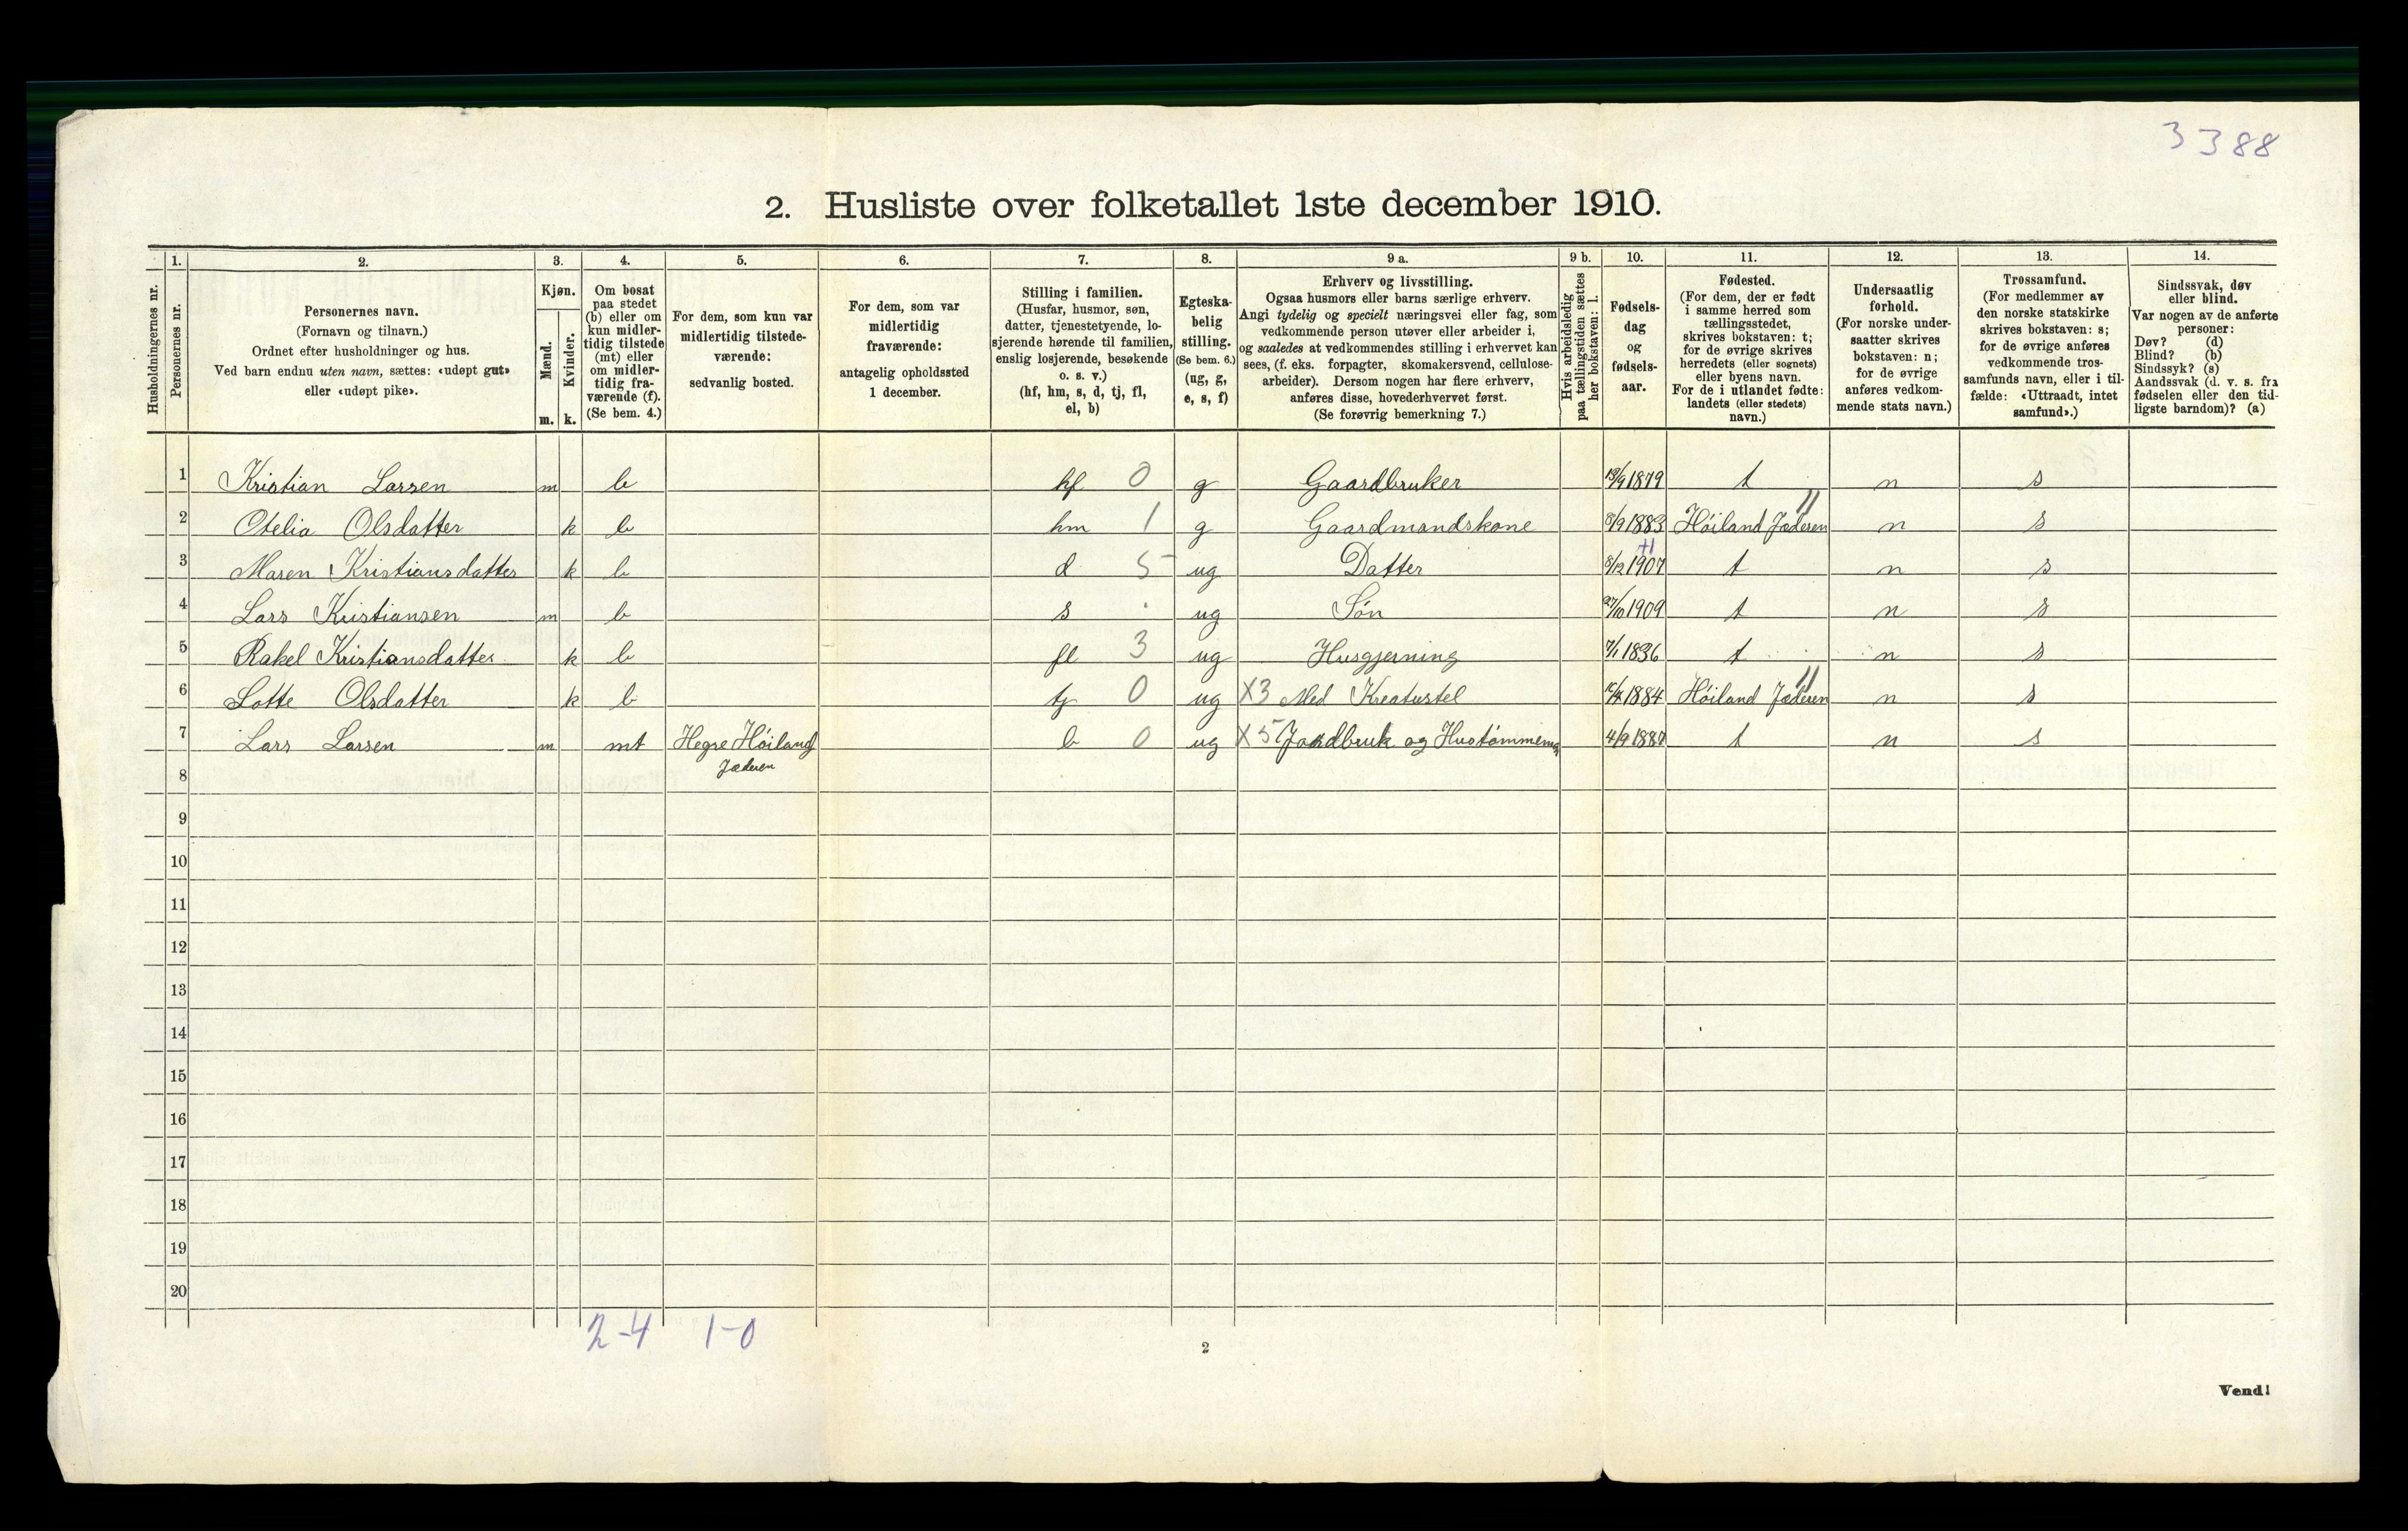 3388
2. Husliste over folketallet 1ste december 1910.
1. 2. 3. 4. 5. 6. 7. 8. 9 a. 9 b. 10. 11. 12. 13. 14.
Husholdningernes nr.
Personernes nr.
Personernes navn.
(Fornavn og tilnavn.)
Ordnet efter husholdninger og hus.
Ved barn endnu uten navn, sættes: «udøpt gut»
eller «udøpt pike».
Kjøn.
Mænd.
Kvinder.
m. k.
Om bosat
paa stedet
(b) eller om
kun midler-
tidig tilstede
(mt) eller
om midler-
tidig fra-
værende (f).
(Se bem. 4.)
For dem, som kun var
midlertidig tilstede-
værende:
sedvanlig bosted.
For dem, som var
midlertidig
fraværende:
antagelig opholdssted
1 december.
Stilling i familien.
(Husfar, husmor, søn,
datter, tjenestetyende, lo-
sjerende hørende til familien,
enslig losjerende, besøkende
o. s. v.)
(hf, hm, s, d, tj, fl,
el, b)
Egteska-
belig
stilling.
(Se bem. 6.)
(ug, g,
e, s, f)
Erhverv og livsstilling.
Ogsaa husmors eller barns særlige erhverv.
Angi tydelig og specielt næringsvei eller fag, som
vedkommende person utøver eller arbeider i,
og saaledes at vedkommendes stilling i erhvervet kan
sees, (f. eks. forpagter, skomakersvend, cellulose-
arbeider). Dersom nogen har flere erhverv,
anføres disse, hovederhvervet først.
(Se forøvrig bemerkning 7.)
Hvis arbeidsledig
paa tællingstiden sættes
her bokstaven: l.
Fødsels-
dag
og
fødsels-
aar.
Fødested.
(For dem, der er født
i samme herred som
tællingsstedet,
skrives bokstaven: t;
for de øvrige skrives
herredets (eller sognets)
eller byens navn.
For de i utlandet fødte:
landets (eller stedets)
navn.)
Undersaatlig
forhold.
(For norske under-
saatter skrives
bokstaven: n;
for de øvrige
anføres vedkom-
mende stats navn.)
Trossamfund.
(For medlemmer av
den norske statskirke
skrives bokstaven: s;
for de øvrige anføres
vedkommende tros-
samfunds navn, eller i til-
fælde: «Uttraadt, intet
samfund».)
Sindssvak, døv
eller blind.
Var nogen av de anførte
personer:
Døv? (d)
Blind? (b)
Sindssyk? (s)
Aandssvak (d. v. s. fra
fødselen eller den tid-
ligste barndom)? (a)
1 Kristian Larsen m b hf 0 g Gaardbruker 1879 t n s
2 Otelia Olsdatter k b hm 1 g Gaardmandskone 8/9 1883 Høiland Jæderen n s
3 Maren Kristiansdatter k b d 5 ug Datter 8/12 1907 t n s
4 Lars Kristiansen m b s ug Søn 27/10 1909 t n s
5 Rakel Kristiansdatter k b fl 3 ug Husgjerning 7/1 1836 t n s
6 Lotte Olsdatter k b tj 0 ug X3 Med Kreaturstel 1884 Høiland Jæderen n s
7 Lars Larsen m mt Hegre Høiland b 0 ug X5 Jordbruk og Hustømmerm. 4/9 t n s
Jæderen
8
9
10
11
12
13
14
15
16
17
18
19
20
2-4 1-0
2
Vend!